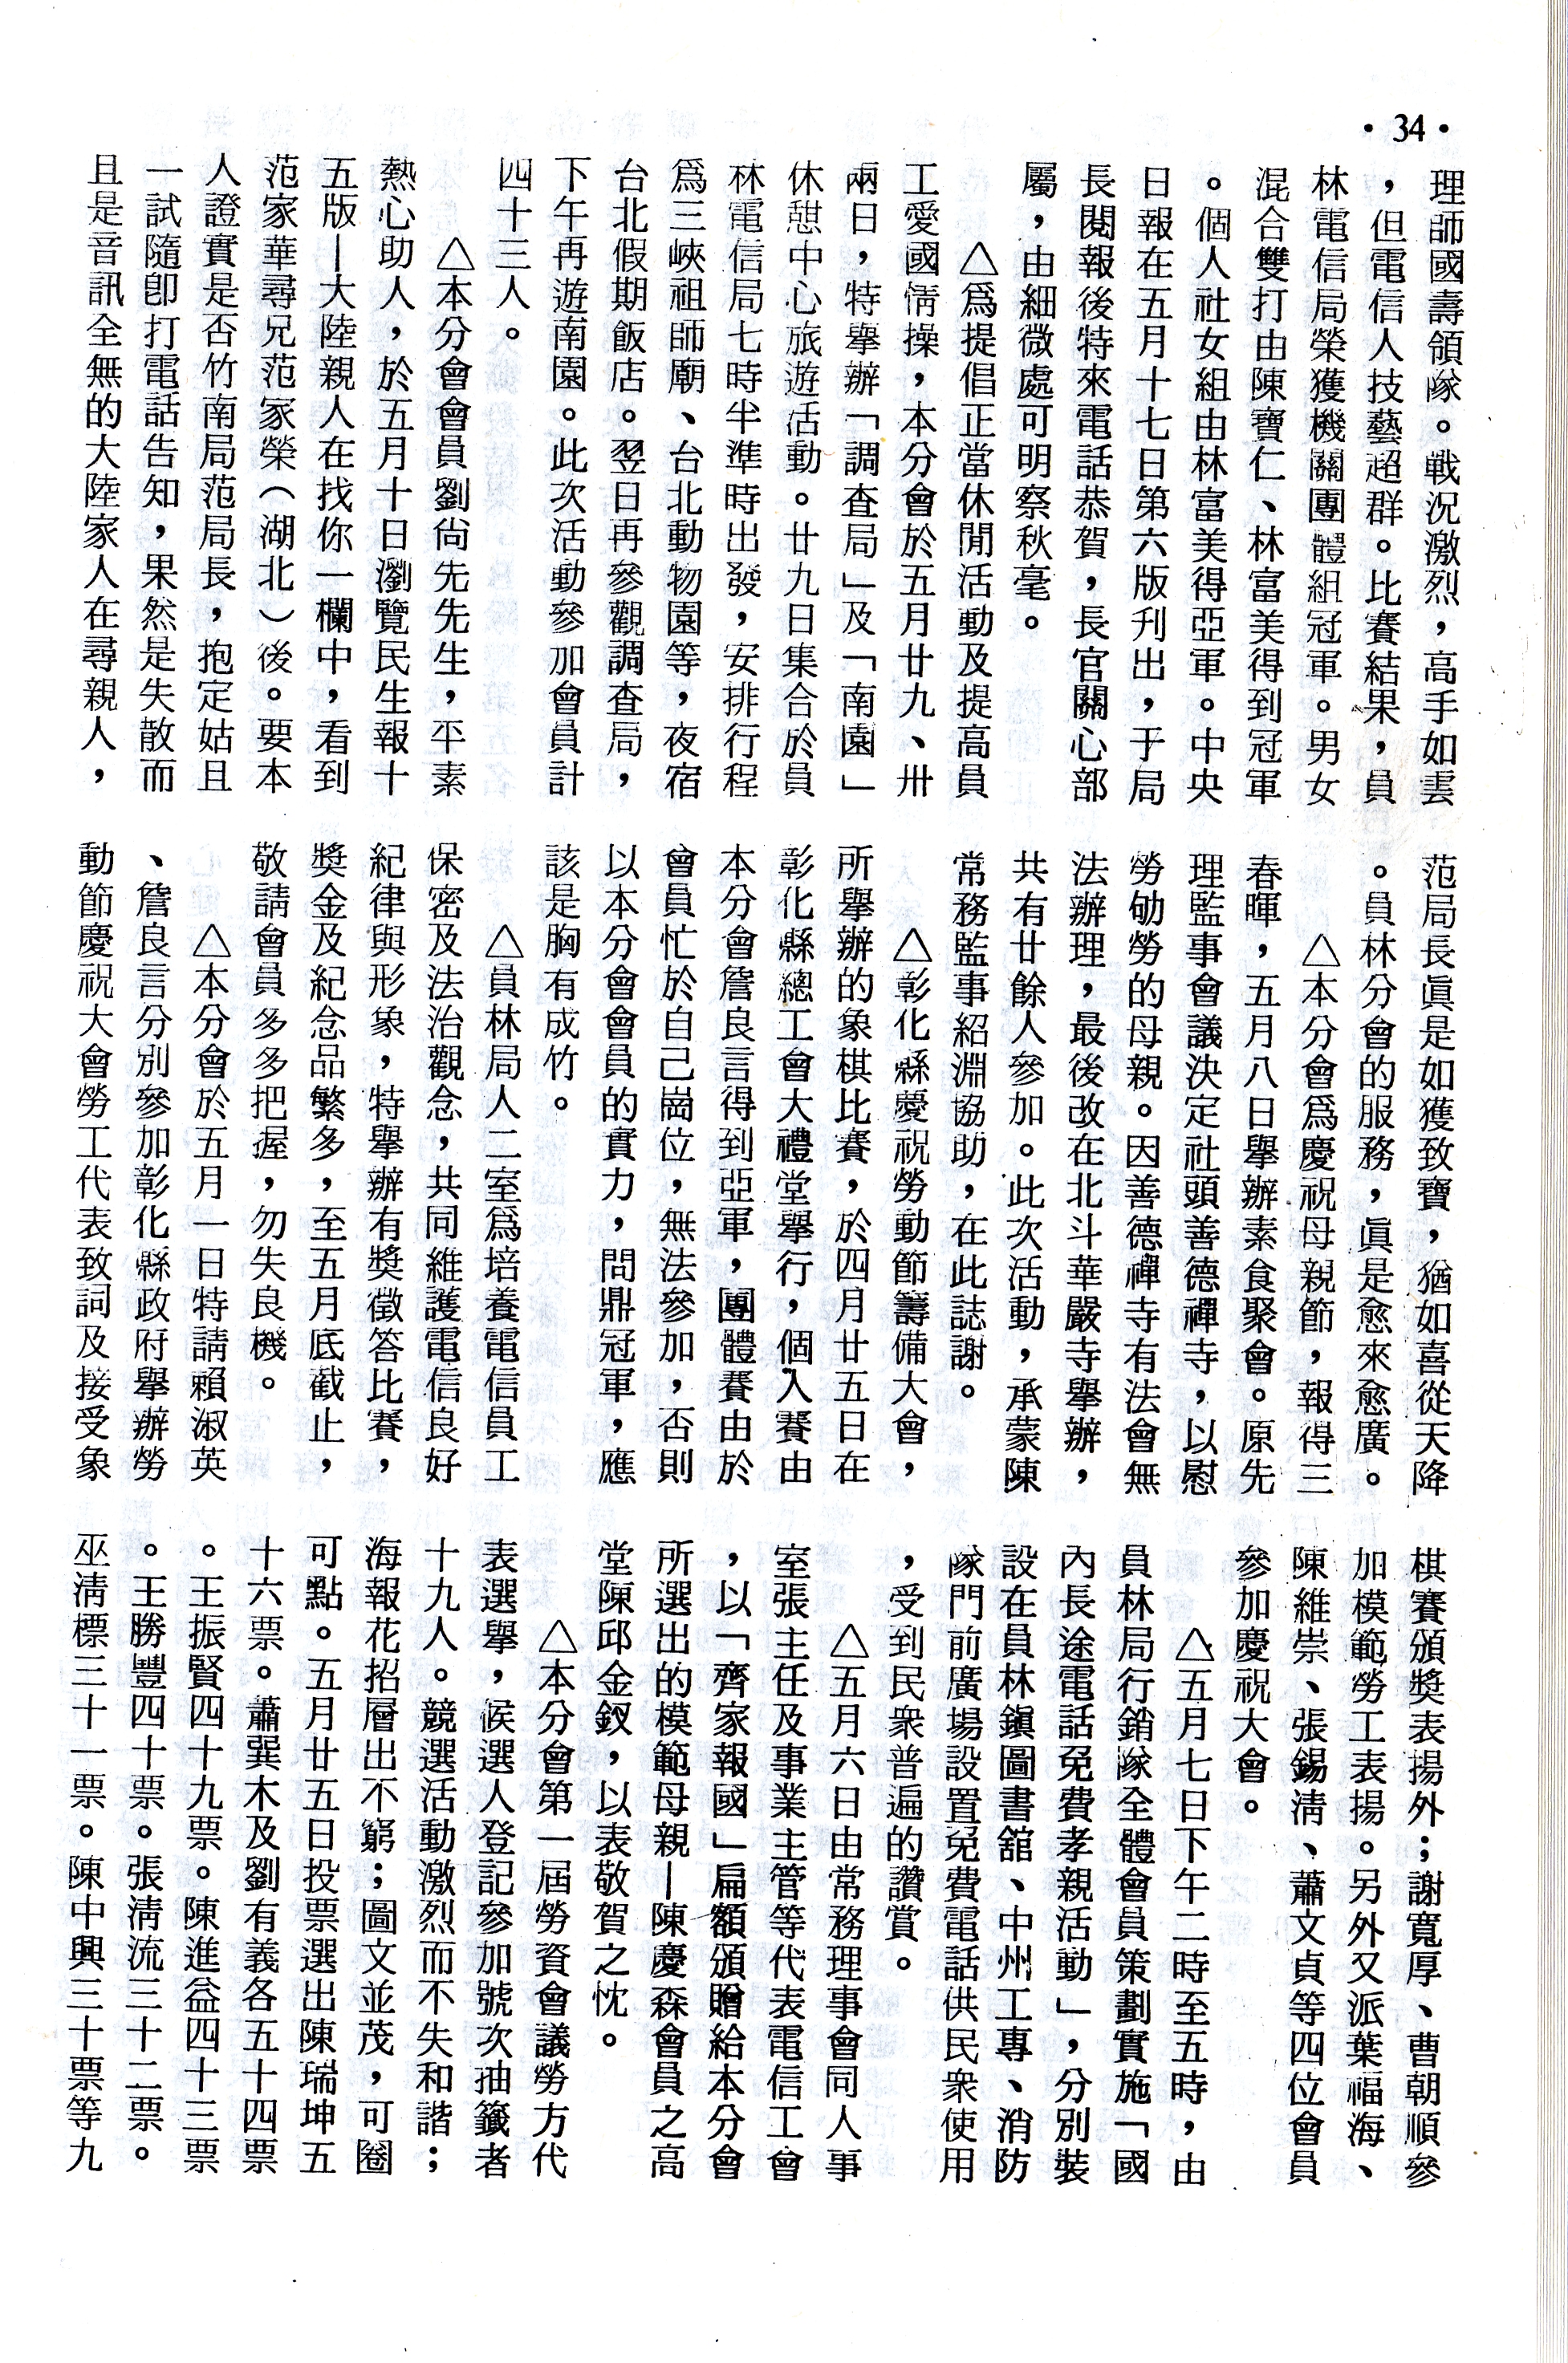 •34•
理師國壽領隊。戰況激烈，高手如雲
，但電信人技藝超群。比賽結果，員
林電信局榮獲機關團體組冠軍。男女
混合雙打由陳寶仁、林富美得到冠軍
。個人社女組由林富美得亞軍。中央
日報在五月十七日第六版刋出，于局
長閱報後特來電話恭賀，長官關心部
屬，由細微處可明察秋毫。
△爲提倡正當休閒活動及提高員
工愛國情操，本分會於五月廿九、卅
兩日，特舉辦「調查局」及「南園」
休憇中心旅遊活動。廿九日集合於員
林電信局七時半準時出發，安排行程
爲三峽祖師廟、台北動物園等，夜宿
台北假期飯店。翌日再參觀調查局，
下午再遊南園。此次活動參加會員計
四十三人。
△本分會會員劉尙先先生，平素
熱心助人，於五月十日瀏覽民生報十
五版—大陸親人在找你一欄中，看到
范家華尋兄范家榮（湖北）後。要本
人證實是否竹南局范局長，抱定姑且
一試隨卽打電話告知，果然是失散而
且是音訊全無的大陸家人在尋親人，
范局長眞是如獲致寶，猶如喜從天降
。員林分會的服務，眞是愈來愈廣。
△本分會爲慶祝母親節，報得三
春暉，五月八日舉辦素食聚會。原先
理監事會議決定社頭善德禪寺，以慰
勞劬勞的母親。因善德禪寺有法會無
法辦理，最後改在北斗華嚴寺舉辦，
共有廿餘人參加。此次活動，承蒙陳
常務監事紹淵協助，在此誌謝。
△彰化縣慶祝勞動節籌備大會，
所舉辦的象棋比賽，於四月廿五日在
彰化縣總工會大禮堂舉行，個人賽由
本分會詹良言得到亞軍，團體賽由於
會員忙於自己崗位，無法參加，否則
以本分會會員的實力，問鼎冠軍，應
該是胸有成竹。
△員林局人二室爲培養電信員工
保密及法治觀念，共同維護電信良好
紀律與形象，特舉辦有獎徵答比賽，
獎金及紀念品繁多，至五月底截止，
敬請會員多多把握，勿失良機。
△本分會於五月一日特請賴淑英
、詹良言分別參加彰化縣政府舉辦勞
動節慶祝大會勞工代表致詞及接受象
棋賽頒獎表揚外；謝寬厚、曹朝順參
加模範勞工表揚。另外又派葉福海、
陳維崇、張錫淸、蕭文貞等四位會員
參加慶祝大會。
△五月七日下午二時至五時，由
員林局行銷隊全體會員策劃實施「國
內長途電話免費孝親活動」，分別裝
設在員林鎭圖書舘、中州工專、消防
隊門前廣場設置免費電話供民衆使用
，受到民衆普遍的讚賞。
△五月六日由常務理事會同人事
室張主任及事業主管等代表電信工會
，以「齊家報國」扁額頒贈給本分會
所選出的模範母親—陳慶森會員之高
堂陳邱金釵，以表敬賀之忱。
△本分會第一屆勞資會議勞方代
表選舉，候選人登記參加號次抽籤者
十九人。競選活動激烈而不失和諧；
海報花招層出不窮；圖文並茂，可圈
可點。五月廿五日投票選出陳瑞坤五
十六票。蕭巽木及劉有義各五十四票
。王振賢四十九票。陳進益四十三票
。王勝豐四十票。張淸流三十二票。
巫淸標三十一票。陳中興三十票等九